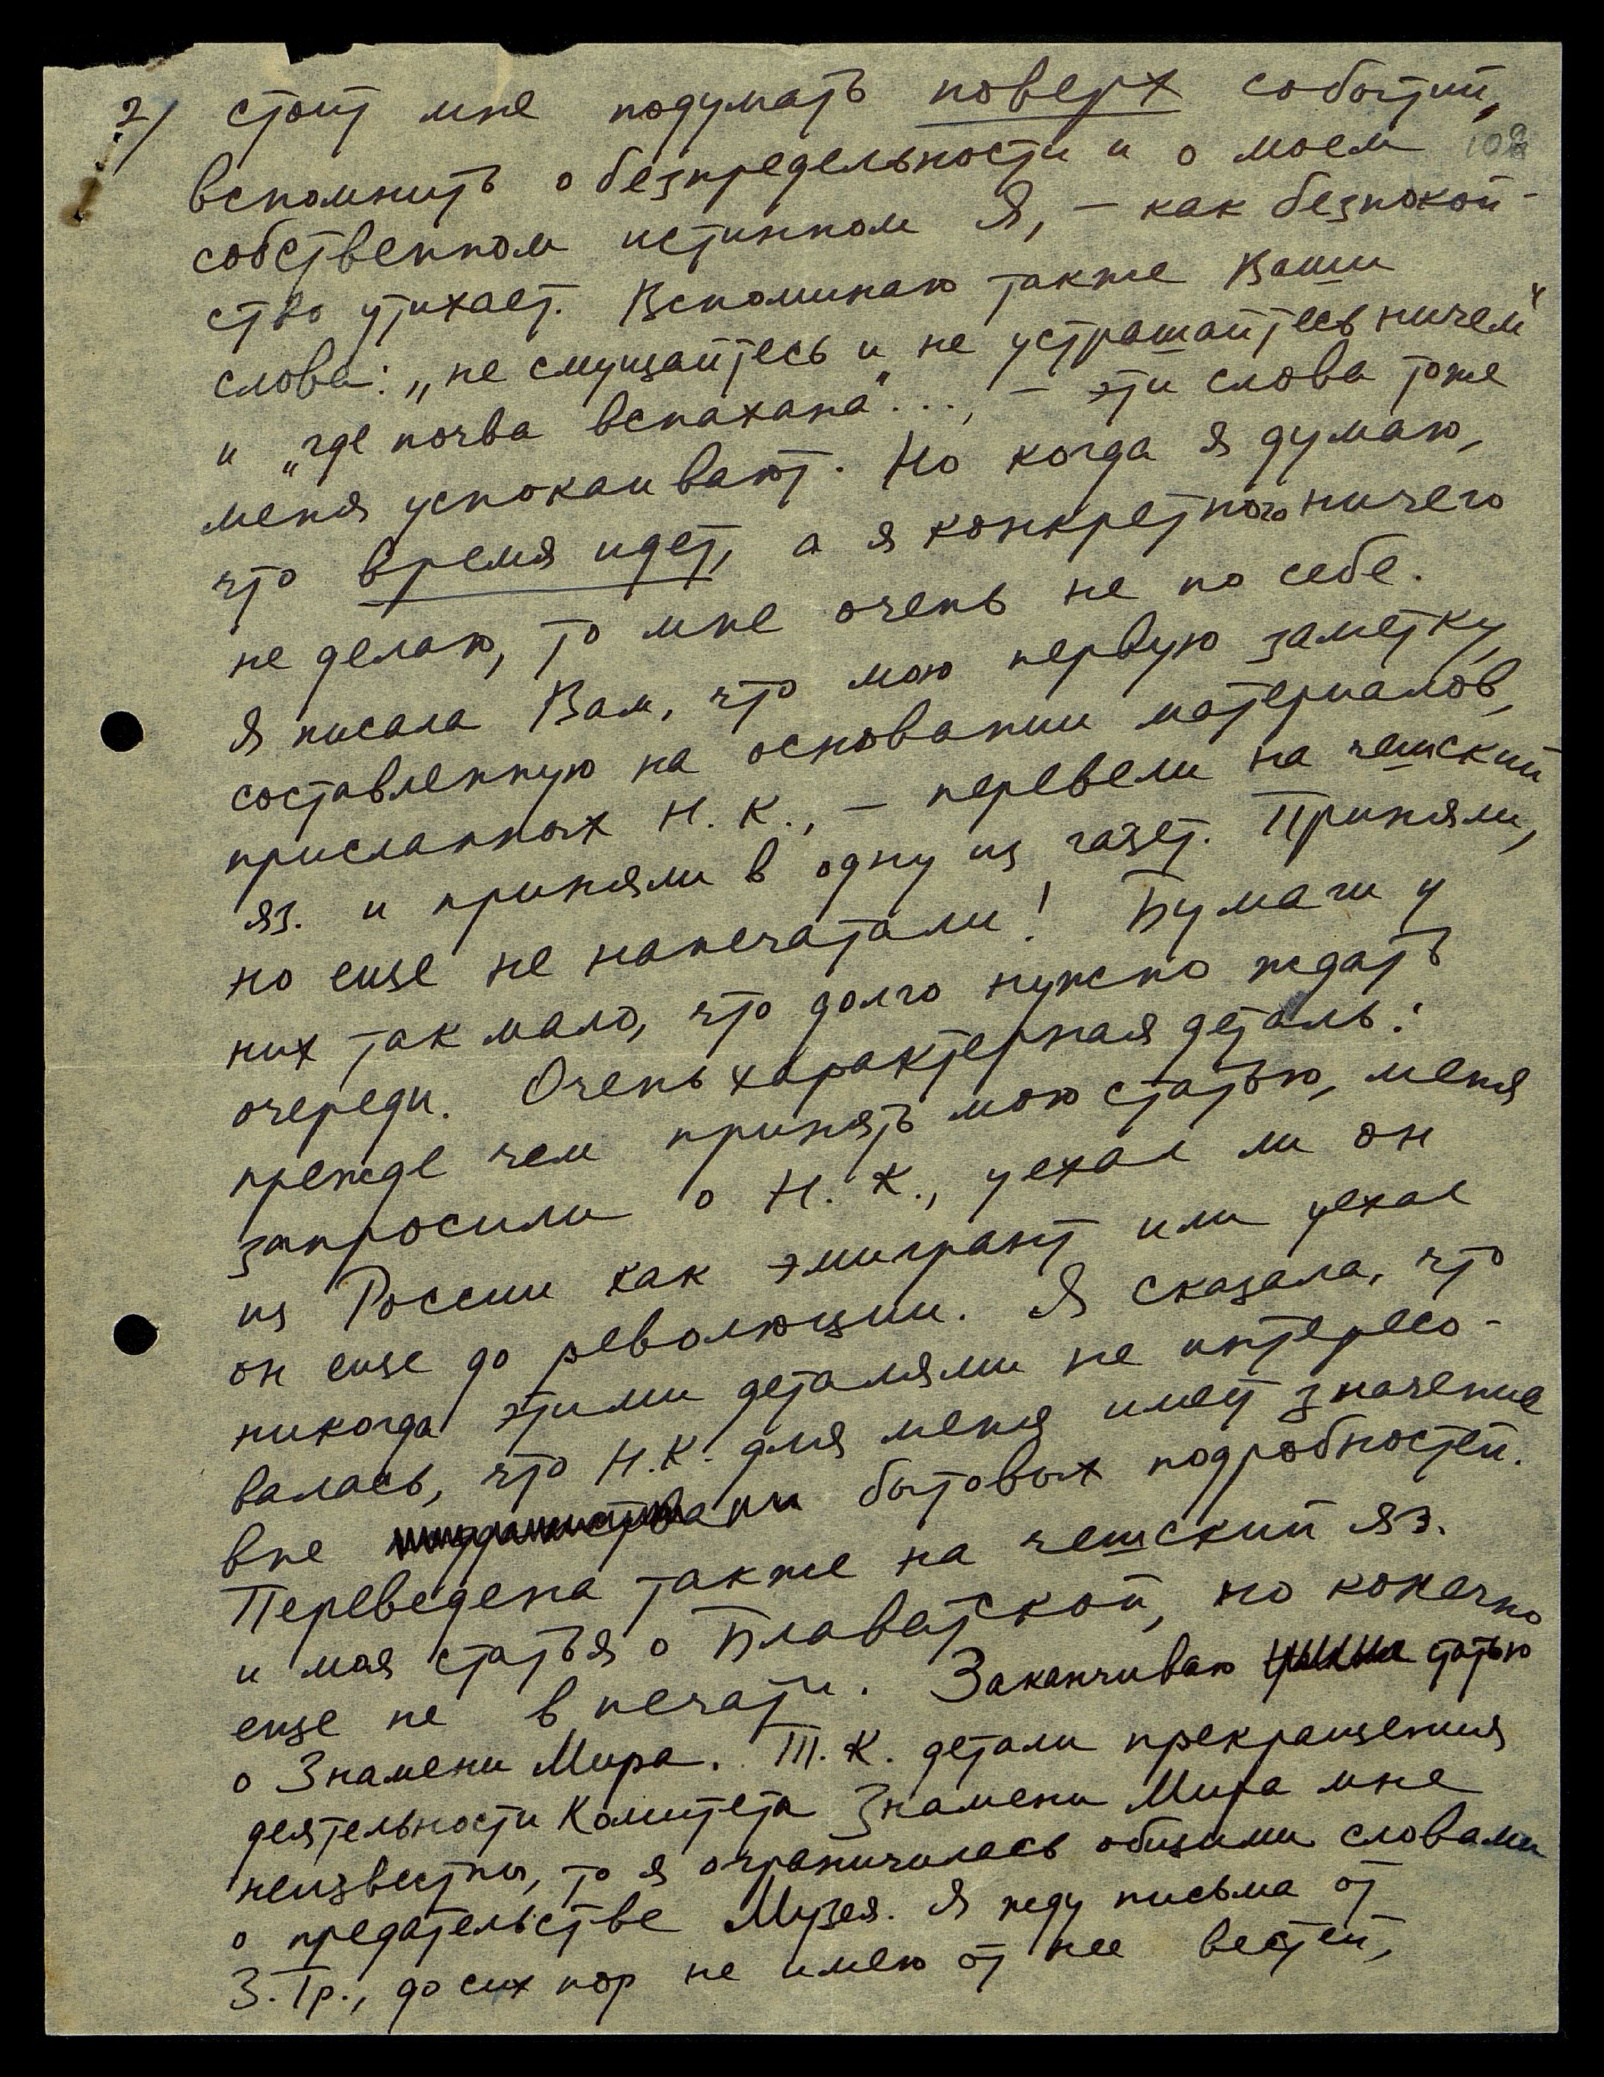 2/ стоит мне подумать поверх событий,
102
вспомнить о безпредельности и о моем
собственном истинном Я, – как безпокой-
ство утихает. Вспоминаю также Ваши
слова: „не смущайтесь и не устрашайтесь ничем"
и „где почва вспахана"..., – эти слова тоже
меня успокаивают. Но когда я думаю,
что время идет, а я конкретного ничего
не делаю, то мне очень не по себе.
Я писала Вам, что мою первую заметку,
составленную на основании материалов,
присланных Н. К., – перевели на чешский
яз. и приняли в одну из газет. Приняли,
но еще не напечатали! Бумаги у
них так мало, что долго нужно ждать
очереди. Очень характерная деталь:
прежде чем принять мою статью, меня
запросили о Н. К., уехал ли он
из России как эмигрант или уехал
он еще до революции. Я сказала, что
никогда этими деталями не интересо-
валась, что Н.К. для меня имеет значение
вне бытовых подробностей.
Переведена также на чешский яз.
и моя статья о Блаватской, но конечно
еще не в печати. Заканчиваю статью
о Знамени Мира. Т. К. детали прекращения
деятельности Комитета Знамени Мира мне
неизвестны, то я ограничилась общими словами
о предательстве Музея. Я жду письма от
З. Гр., до сих пор не имею от нее вестей,